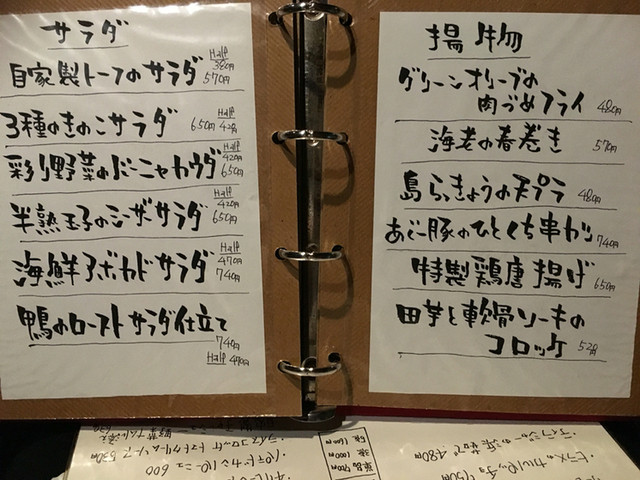 サラダ
Half
380円
自家製トーフのサラダ 570円
3種のきのこサラダ 650円 Half 420円
Half
420円
彩り野菜のバーニャカウダ 650円
Half
420円
半熟玉子のシーザーサラダ 650円
Half
470円
海鮮アボカドサラダ 740円
鴨のローストサラダ仕立て
740円
Half 470円
揚物
グリーンオリーブの
肉づめフライ 480円
海老の春巻き 570円
島らっきょうの天プラ 480円
あぐー豚のひとくち串カツ 740円
特製鶏唐揚げ 650円
田芋と軟骨ソーキの
コロッケ 520円